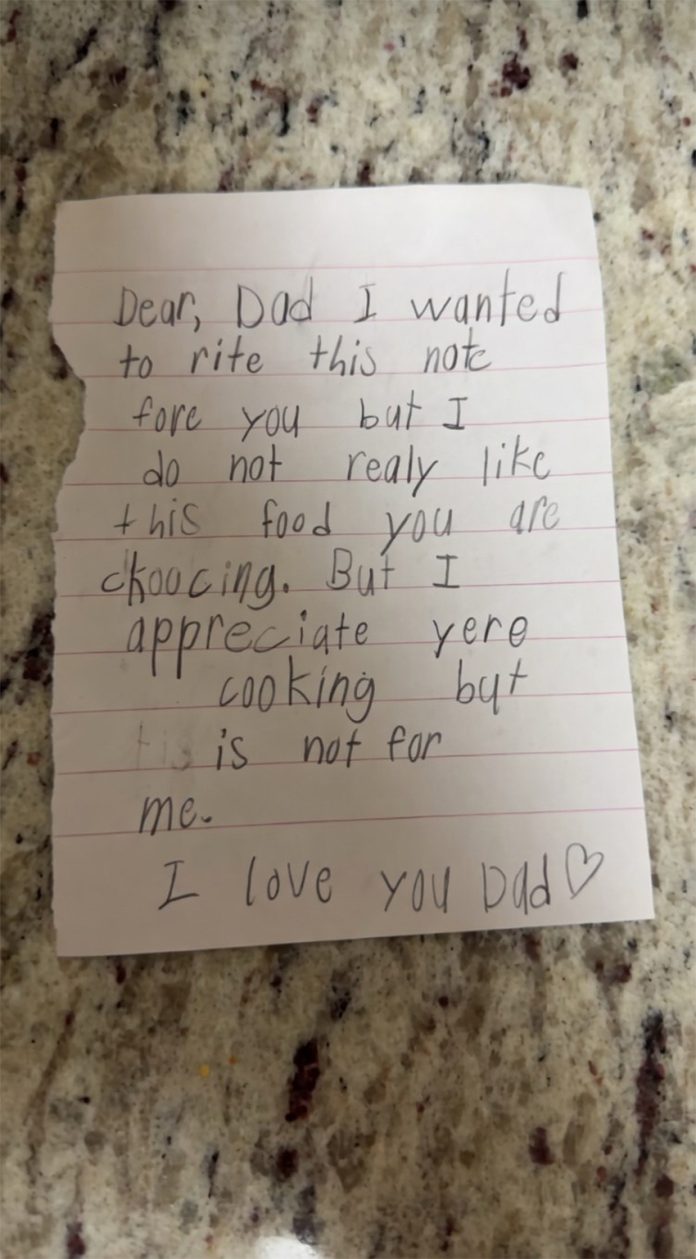 Dear, Dad I wanted
to rite this note
fore you but I
do not realy like
this food you are
choocing. But I
appreciate yere
cooking but
tis is not for
me.
I love you Dad♡